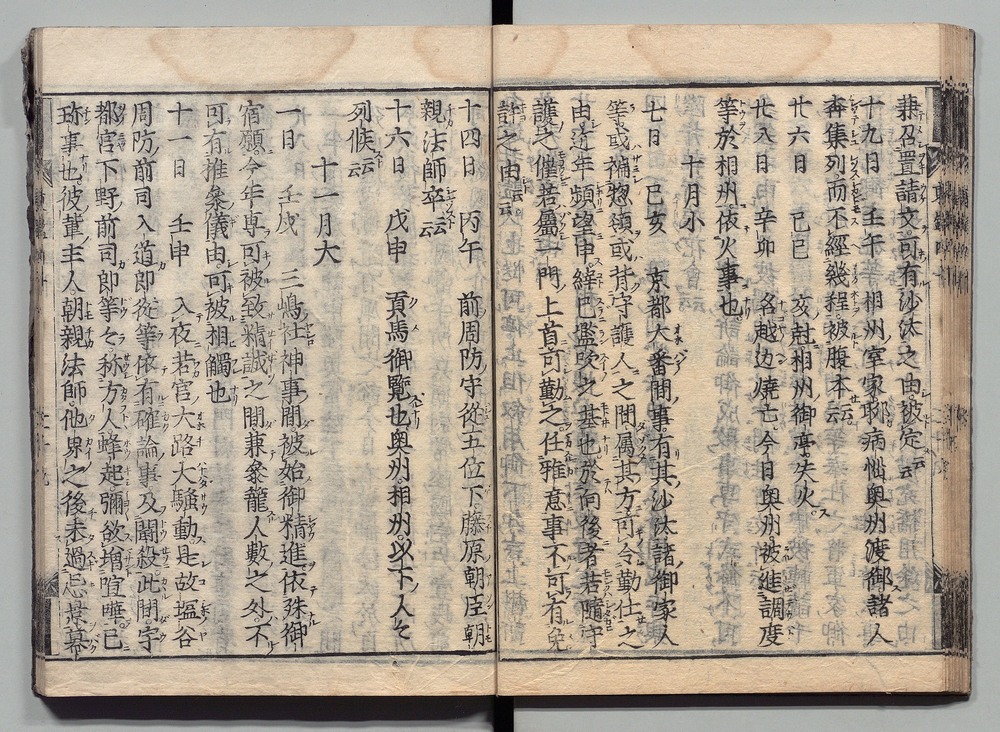 兼召置請文可有沙汰之由被定云云
十九日 壬午 相州室家聊病悩奥州渡御諸人
奔集列而不經幾程被腹本云云
廿六日 己巳 亥尅相州御亭失火
廿八日 辛卯 名越边燒亡今日奥州被進調度
等於相州依火事也
十月小
七日 己亥 京都大番間事有其沙汰諸御家人
等或補惣領或背守護人之間属其方可令勤仕之
由近年頻望申繹巳濫吹之基也於向後者若隨守
護之催若屬一門上首可勤之任雅意事不可有免
許之由云云
十四日 丙午 前周防守從五位下藤原朝臣朝
親法師卒云云
十六日 戊申 貢馬御覽也奥州相州以下人々
列候云云
十一月大
一日 壬戌 三嶋社神事間被始御精進依殊御
宿願今年専可被致精誠之間兼參籠人數之外不
可有推參儀由可被相觸也
十一日 壬申 入夜若宮大路大騒動是故塩谷
周防前司入道即從等依有確論事及鬪殺此間宇
都宮下野前司郎等々称方人蜂起彌欲增喧嘩巳
珎事也彼輩主人朝親法師他界之後未過忌景幕